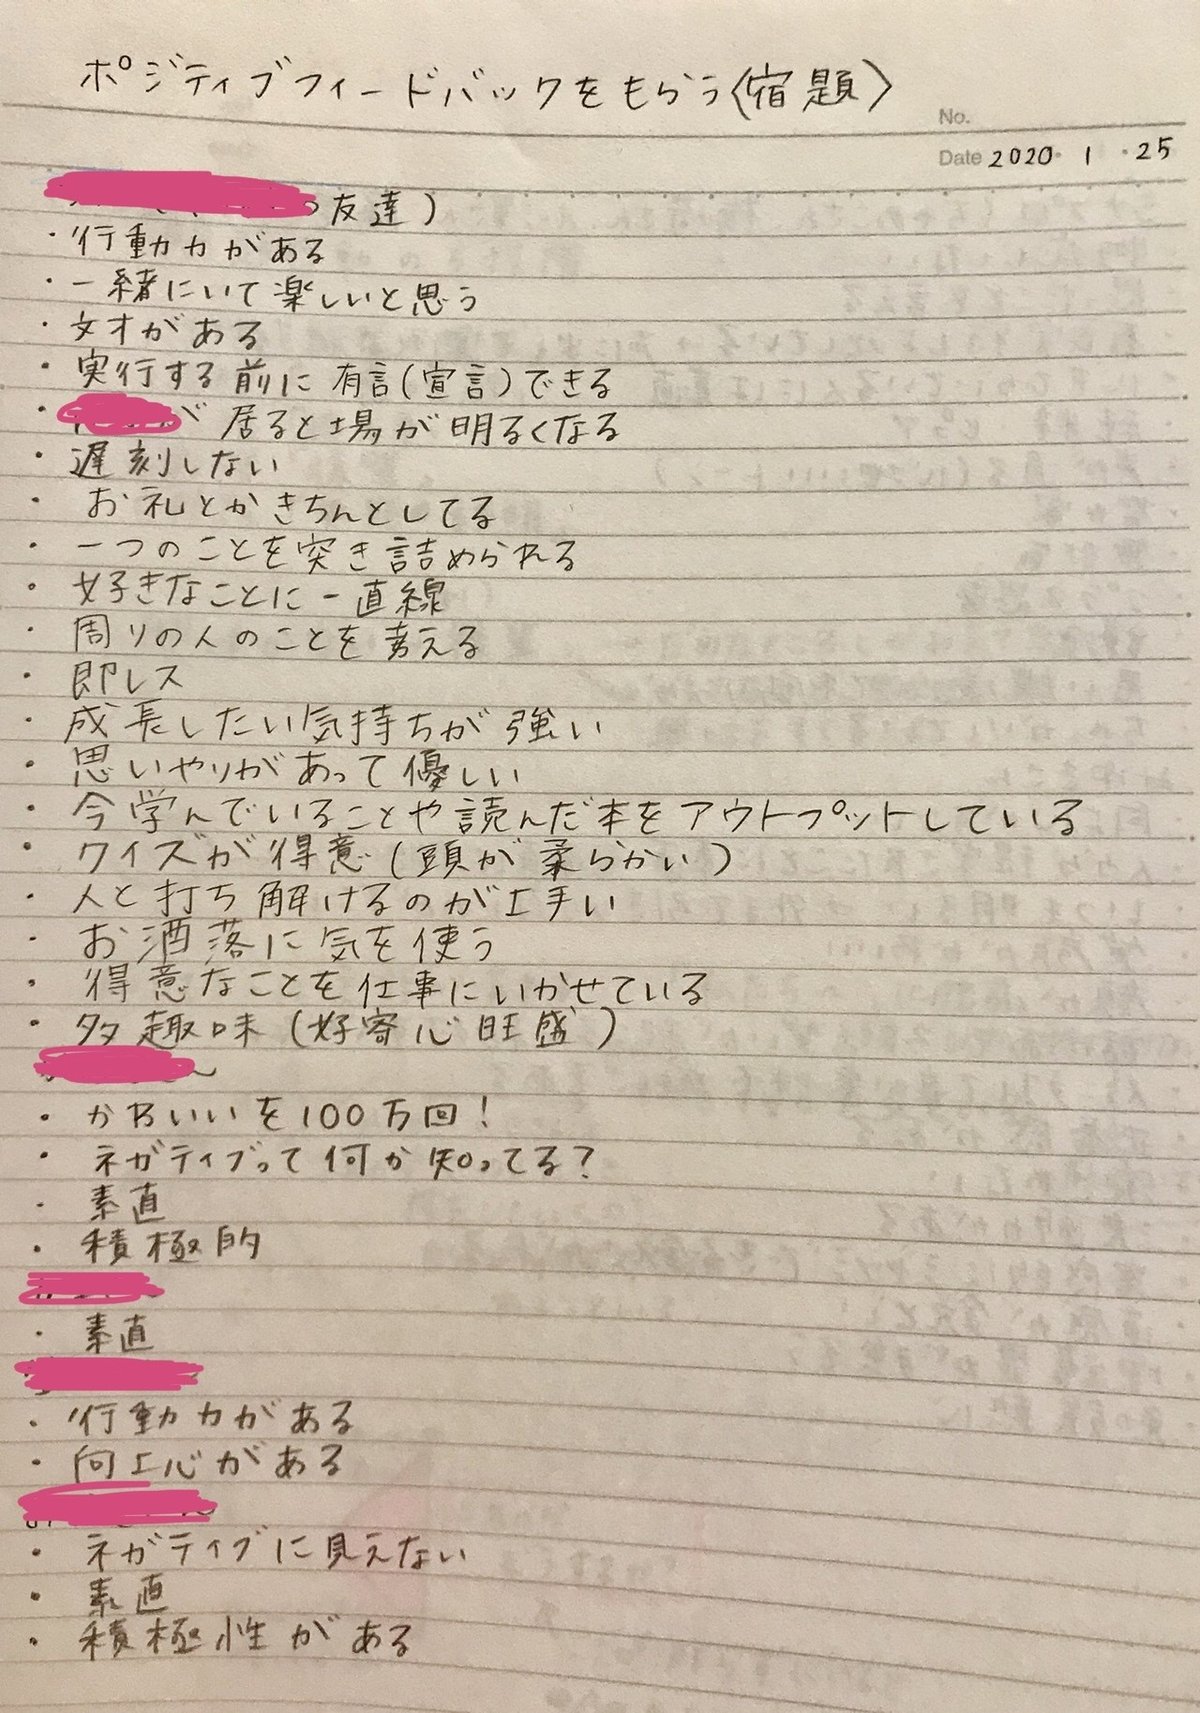 ポジティブフィードバックをもらう〈宿題〉
No.
Date 2020・1・25
友達)
・行動力がある
・一緒にいて楽しいと思う
・文才がある
・実行する前に有言(宣言)できる
・が居ると場が明るくなる
・遅刻しない
・お礼とかきちんとしてる
・一つのことを突き詰められる
・好きなことに一直線
・周りの人のことを考える
・即レス
・成長したい気持ちが強い
・思いやりがあって優しい
・今学んでいることや読んだ本をアウトプットしている
・クイズが得意(頭が柔らかい)
・人と打ち解けるのが上手い
・お洒落に気を使う
・得意なことを仕事にいかせている
・多趣味(好寄心旺盛)
・かわいいを100万回!
・ネガティブって何か知ってる?
・素直
・積極的
・素直
・行動力がある
・向上心がある
・ネガティブに見えない
・素直
・積極性がある